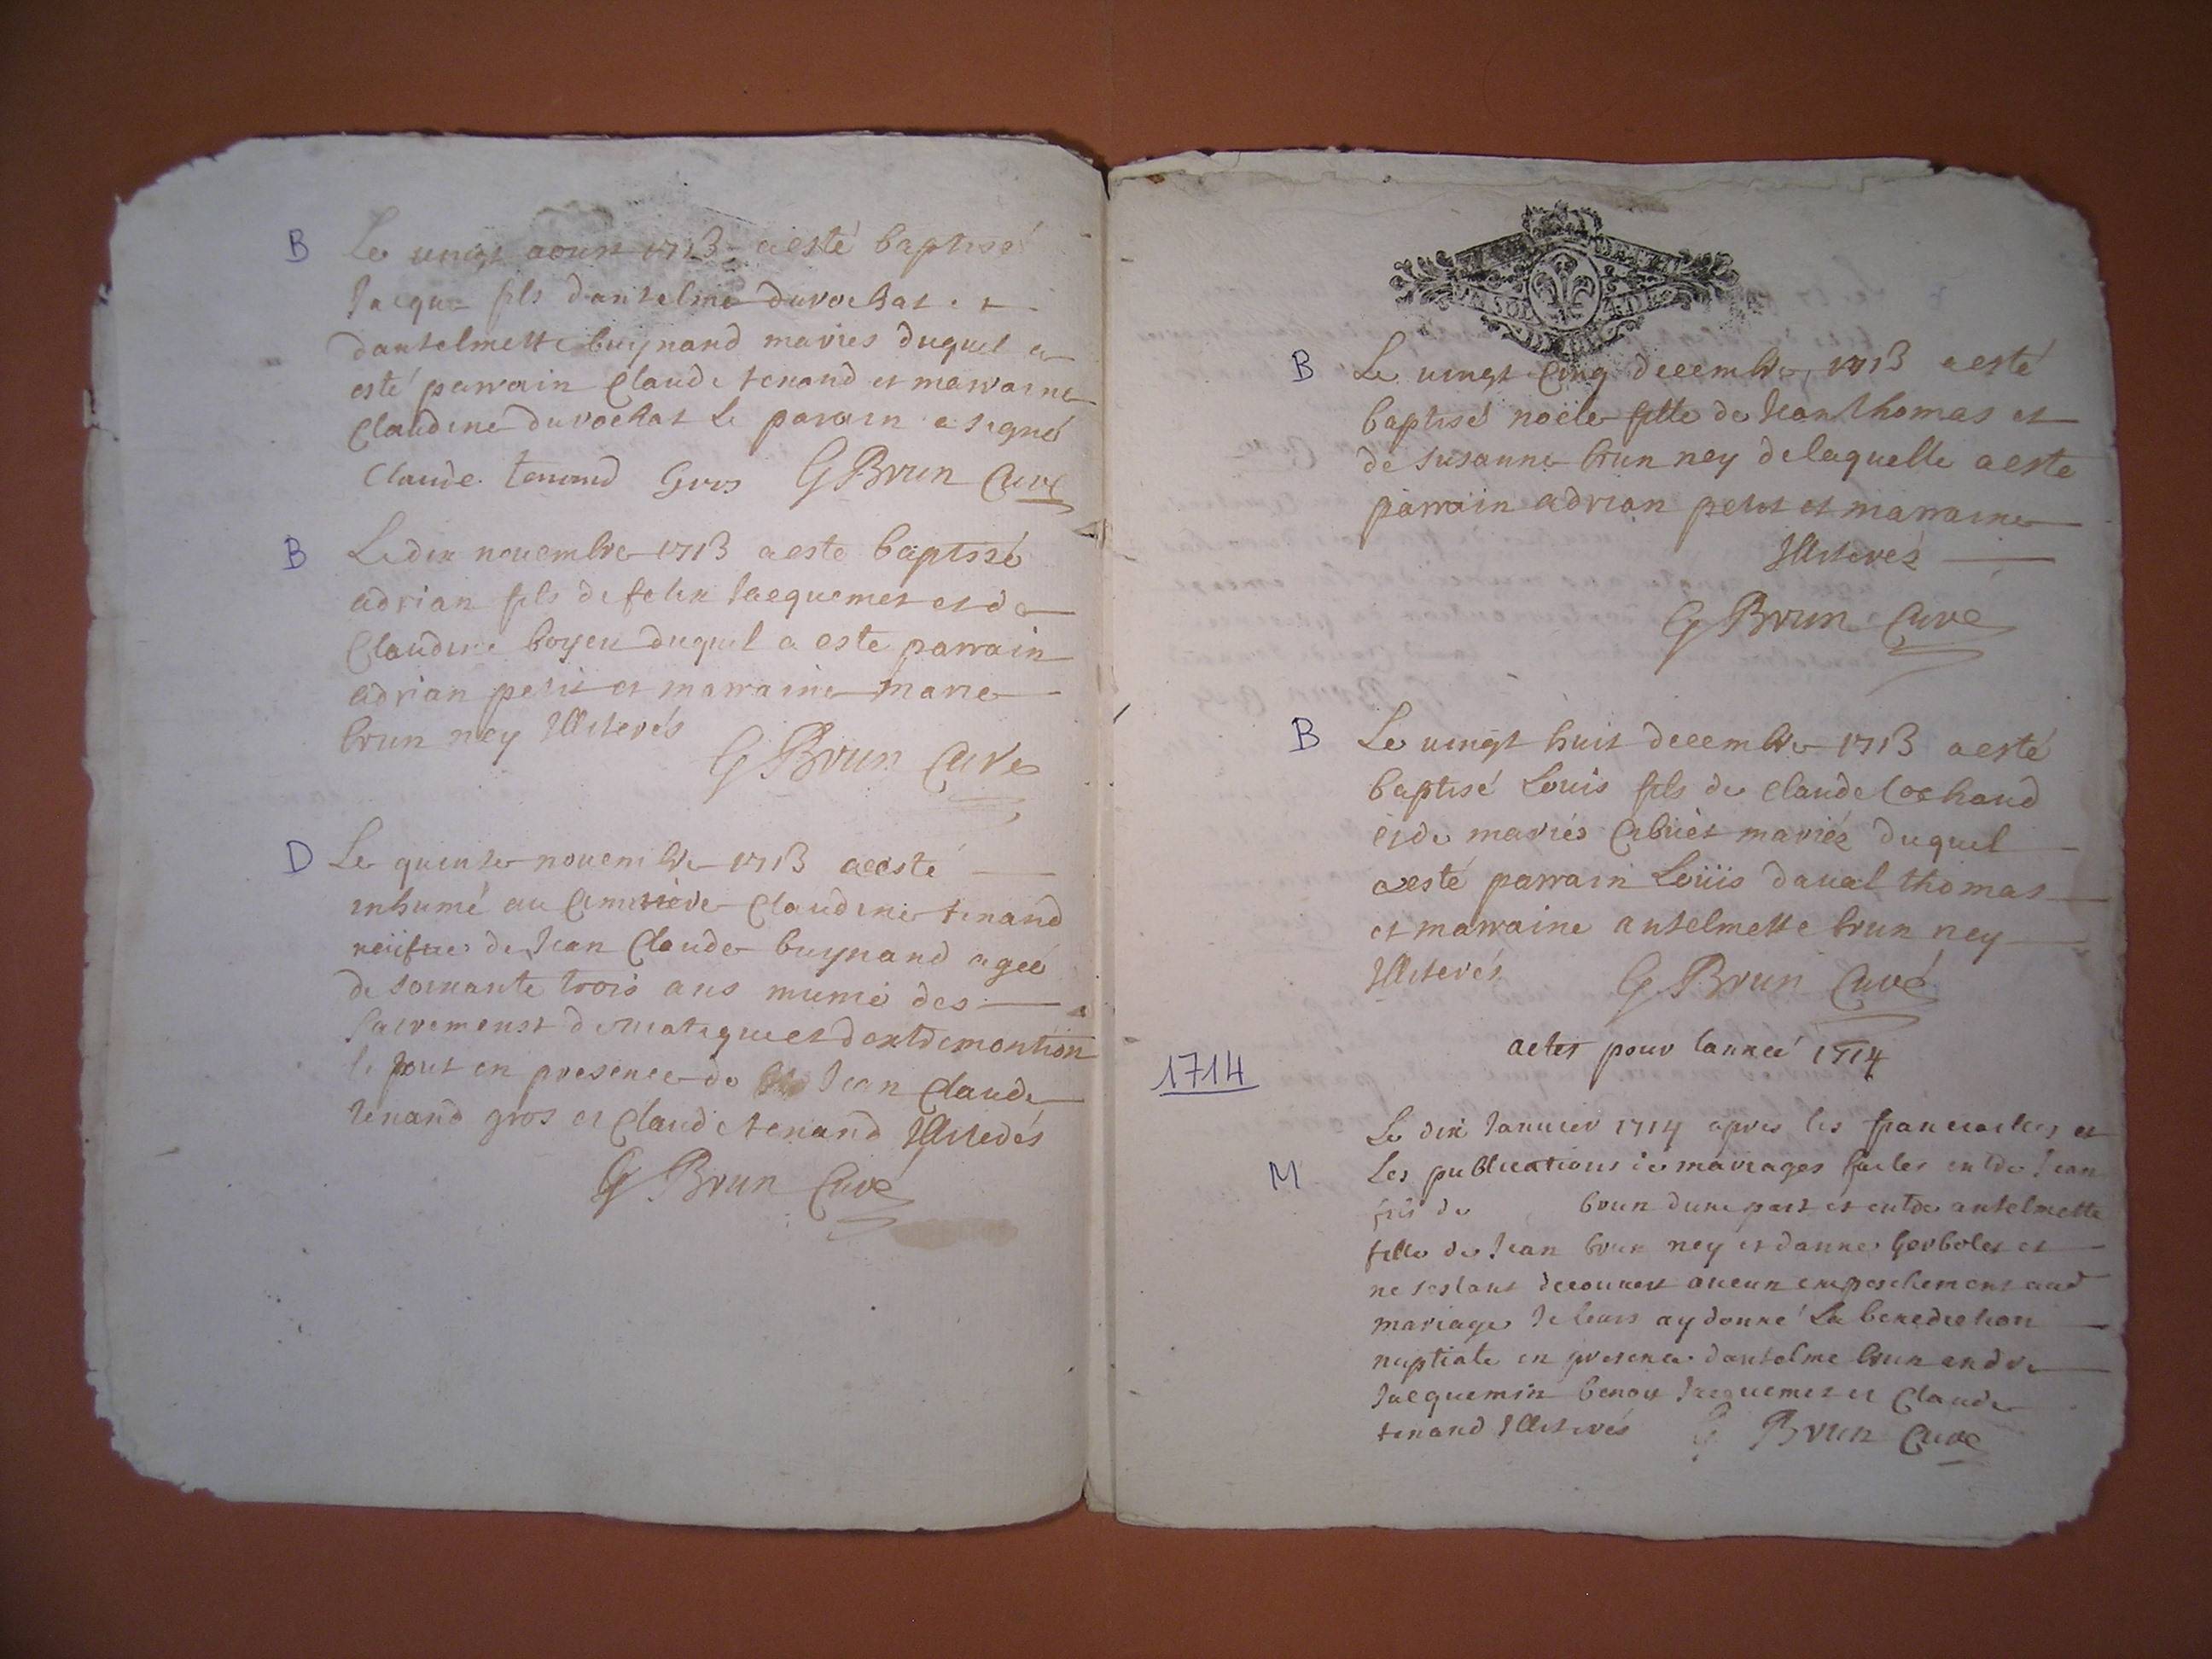 B Le vingt aoust 1713 a esté baptisé
Jacque fils dantelme duvochat et
dantelmette buynand mariés duquel a
esté parrain Claude tenand et marraine
Claudine duvochat le parain a signé
Claude tenand Gros G Brun Curé
B Le dix novembre 1713 a este baptisé
adrian fils de felix Jacquemet et de
Claudine boyeu duquel a este parrain
adrian petit et marraine marie
brun ney Illiterés
G Brun Curé
D Le quinze novembre 1713 a esté
inhumé au Cimetiere Claudine tenand
de Jean Claude buynand agée
de soixante trois ans munie des
sacremens de viatique et dextremontion
le tout en presence de Jean Claude
tenand gros et Claude tenand Illiterés
G Brun Curé
B Le vingt Cinq decembre 1713 a esté
baptisé noële fille de Jean thomas et
de susanne brun ney delaquelle a este
parrain adrian petit et marraine
Illiterés
G Brun Curé
B Le vingt huit decembre 1713 a esté
baptisé Louis fils de Claude Cochand
et de mariés mariés duquel
a esté parrain Loüis daval thomas
et marraine antelmette brun ney
Illiterés G Brun Curé
actes pour lanneé 1714
1714
Le dix Janvier 1714 apres les fiancailles et
M Les publications de mariages faites entre Jean
fils de brun dune part et entre antelmette
fille de Jean brun ney et danne Gerbolet et
ne sestant decouvert aucun empeschement aud
mariage Je leurs ay donné La benediction
nuptiale en presence dantelme brun andre
Jacquemin benoit Jacquemet et Claude
tenand Illiterés G Brun Curé